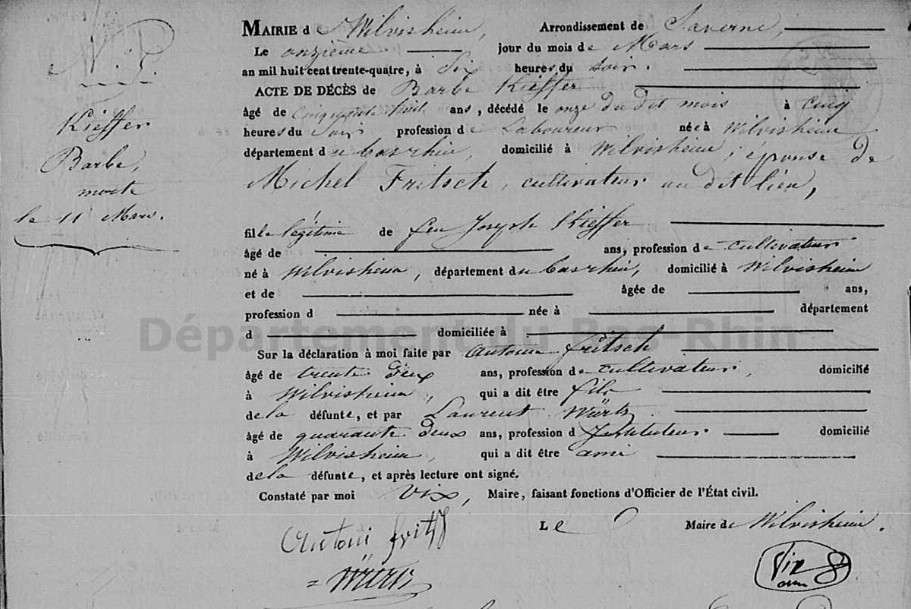 MAIRIE de Wilvisheim, Arrondissement de Saverne,
Le onzieme jour du mois de Mars
an mil huit cent trente-quatre, à Six heures du soir.
ACTE DE DÉCÈS de Barbe Kieffer
âgé de Cinquante huit ans, décédé le onze du dit mois à cinq
heures du Soir profession de Laboureur née à Wilvisheim
département du basrhin, domicilié à Wilvisheim, épouse de
Michel Fritsch, cultivateur au dit lieu,
fille légitime de feu Joseph Kieffer
âgé de ans, profession de cultivateur
né à Wilvisheim, département du basrhin, domicilié à Wilvisheim
et de âgée de ans,
profession d née à département
d domiciliée à
Sur la déclaration à moi faite par Antoine fritsch
âgé de trente deux ans, profession de cultivateur, domicilié
à Wilvisheim, qui a dit être fils
de la défunte, et par Laurent Würtz
âgé de quarante deux ans, profession d Instituteur domicilié
à Wilvisheim, qui a dit être ami
de la défunte, et après lecture ont signé.
Constaté par moi Vix, Maire, faisant fonctions d'Officier de l'État civil.
Le Maire de Wilvisheim.
Antoni fritsch
Vix
Würtz
Kieffer
Barbe,
morte
le 11 Mars.
Département du Bas-Rhin